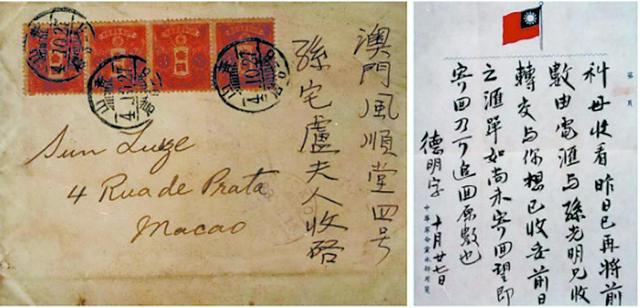 澳門風順堂四号
孫宅盧夫人收啓
Sun Luze
4 Rua de Prata
Macao
青山
4.10.27
科母收看昨日已再將前
數由電滙与孫光明兄收
轉交与你想已收妥前日
之滙單如尚未寄回望即
寄回乃可追回原數也
德明字
十月廿七日
中華革命黨本部用箋